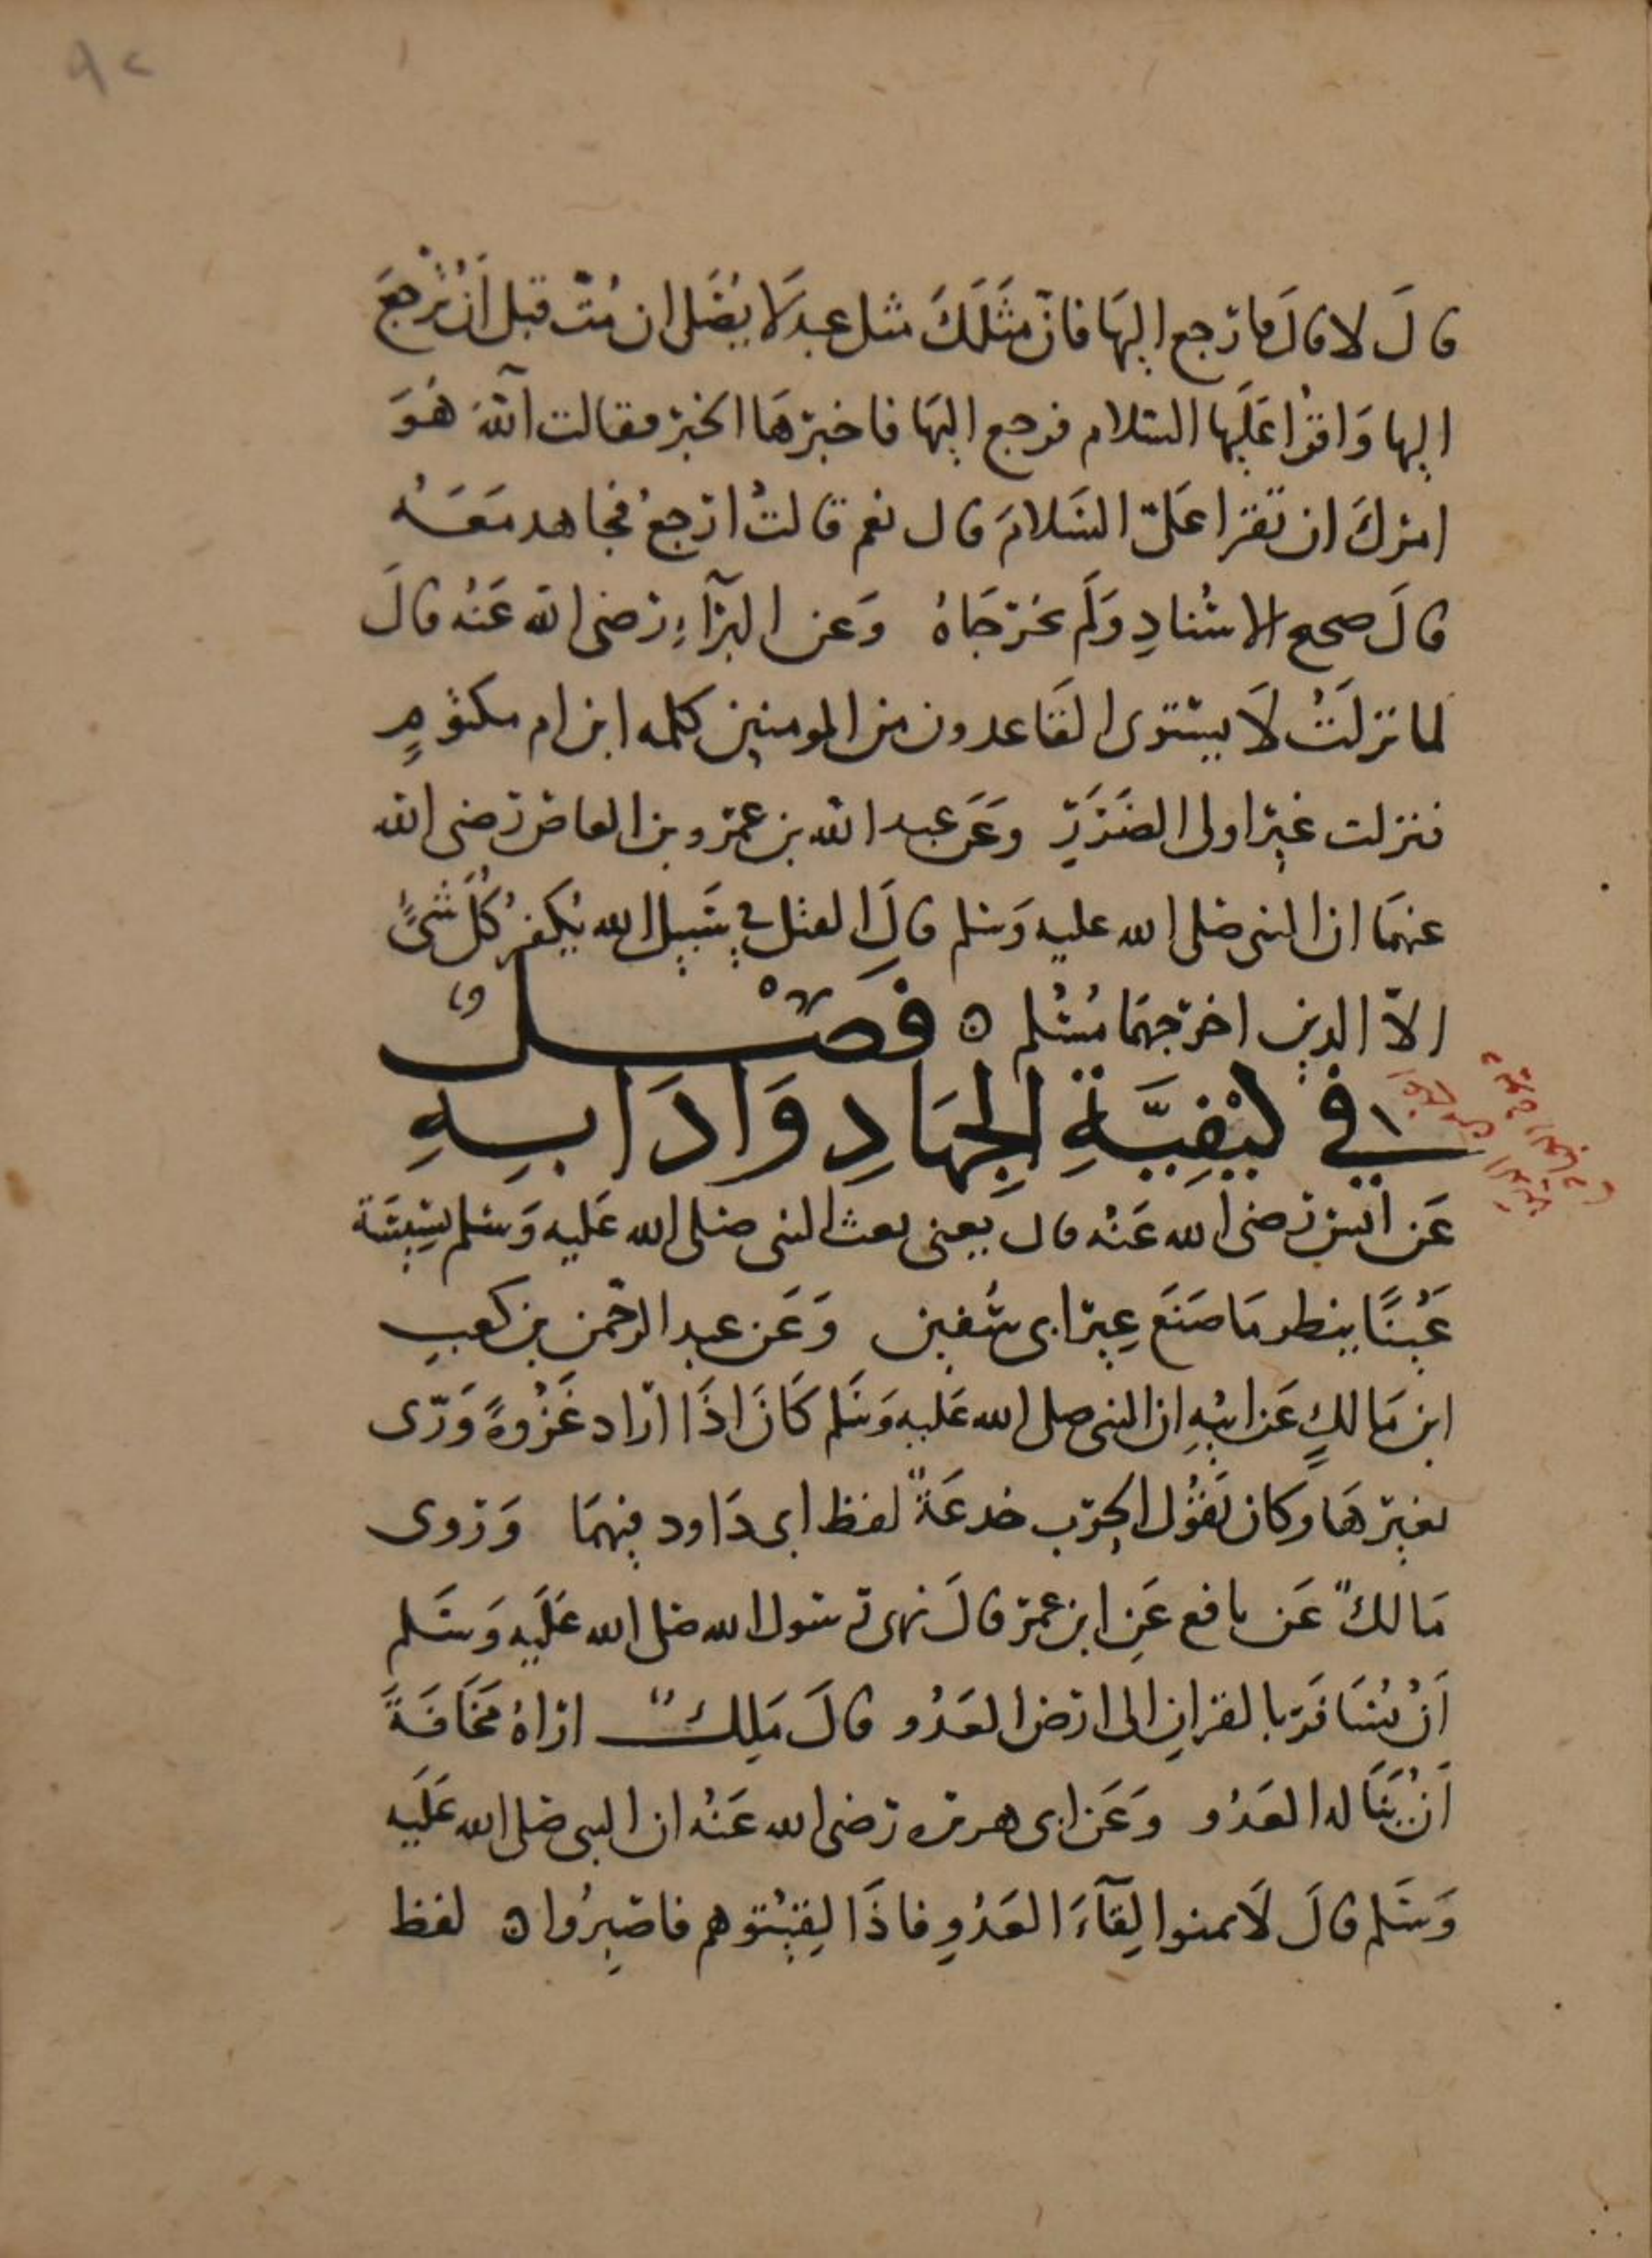 ٩٢
قالَ لا قالَ فارجع اليهَا فانّ مثَلَكَ مثل عبدٍ لَا يُصَلى ان مُتّ قبل اَنْ تَرجعَ
اليها وَاقرْا عَلَيها السّلام فرجع اليهَا فاخبرهَا الخبر فقالت آللهَ هُوَ
امركَ ان تقرا عَليّ السَلامَ قال نعم قالتْ ارجعْ فجاهد معَهُ
قالَ صحيح الاسْنادِ وَلَم يخرجَاهُ وَعن البرآءِ رضى الله عَنْه قالَ
لما نزلَتْ لَا يستوى القَاعدون من المومنين كلمه ابن ام مكتومٍ
فنزلت غير اولى الضَرَرِ وعَن عبد الله بن عمرو بن العاص رضى الله
عنهمَا ان النبى صلى الله عليه وَسلم قالَ القتل فى سَبيل الله يُكفرُ كُلَّ شىءٍ
الاّ الدين اخرجهمَا مُسْلم ه فَصْل
فى كيْفيَّةِ الجِهَادِ وَادَابِهِ
عَن انس رضى الله عَنْه قال يعنى بعث النبى صلى الله عَليه وَسلم بسبسَة
عَيْنًا ينظر مَا صَنَع عِير ابى سُفين وَعَن عبد الرحمن بن كعبِ
ابن مَالكٍ عَن ابيْهِ ان النبى صلى الله عَليه وَسَلم كَانَ اذَا ارَاد غَزْوةً وَرّى
بغيرهَا وكان يَقُول الحرب خدعَةٌ لفظ ابى دَاود فيهمَا وَروى
مَالكٌ عَن نافع عَنِ ابن عمر قالَ نهى رسول الله صلى الله عَلَيه وَسَلم
اَنْ يُسَافَر بالقرانِ الى ارض العَدُو قالَ مَلِكٌ ارَاهُ مَخَافَةَ
اَنْ يَنَاله العَدُو وَعَن ابى هريره رضى الله عَنْه ان النبى صلى الله عَلَيه
وَسَلم قالَ لَا تمنوا لِقَآءَ العَدُوِ فاذَا لِقيْتوهم فاصْبِرُوا ه لفظ